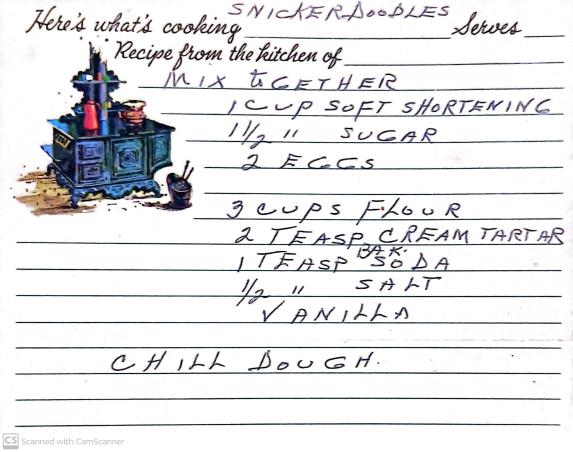 Here's what's cooking SNICKERDOODLES Serves
Recipe from the kitchen of
MIX tOGETHER
1 CUP SOFT SHORTENING
1 1/2 " SUGAR
2 EGGS
3 CUPS FLOUR
2 TEASP CREAM TARTAR
1 TEASP BAK. SODA
1/2 " SALT
VANILLA
CHILL DOUGH.
CS Scanned with CamScanner